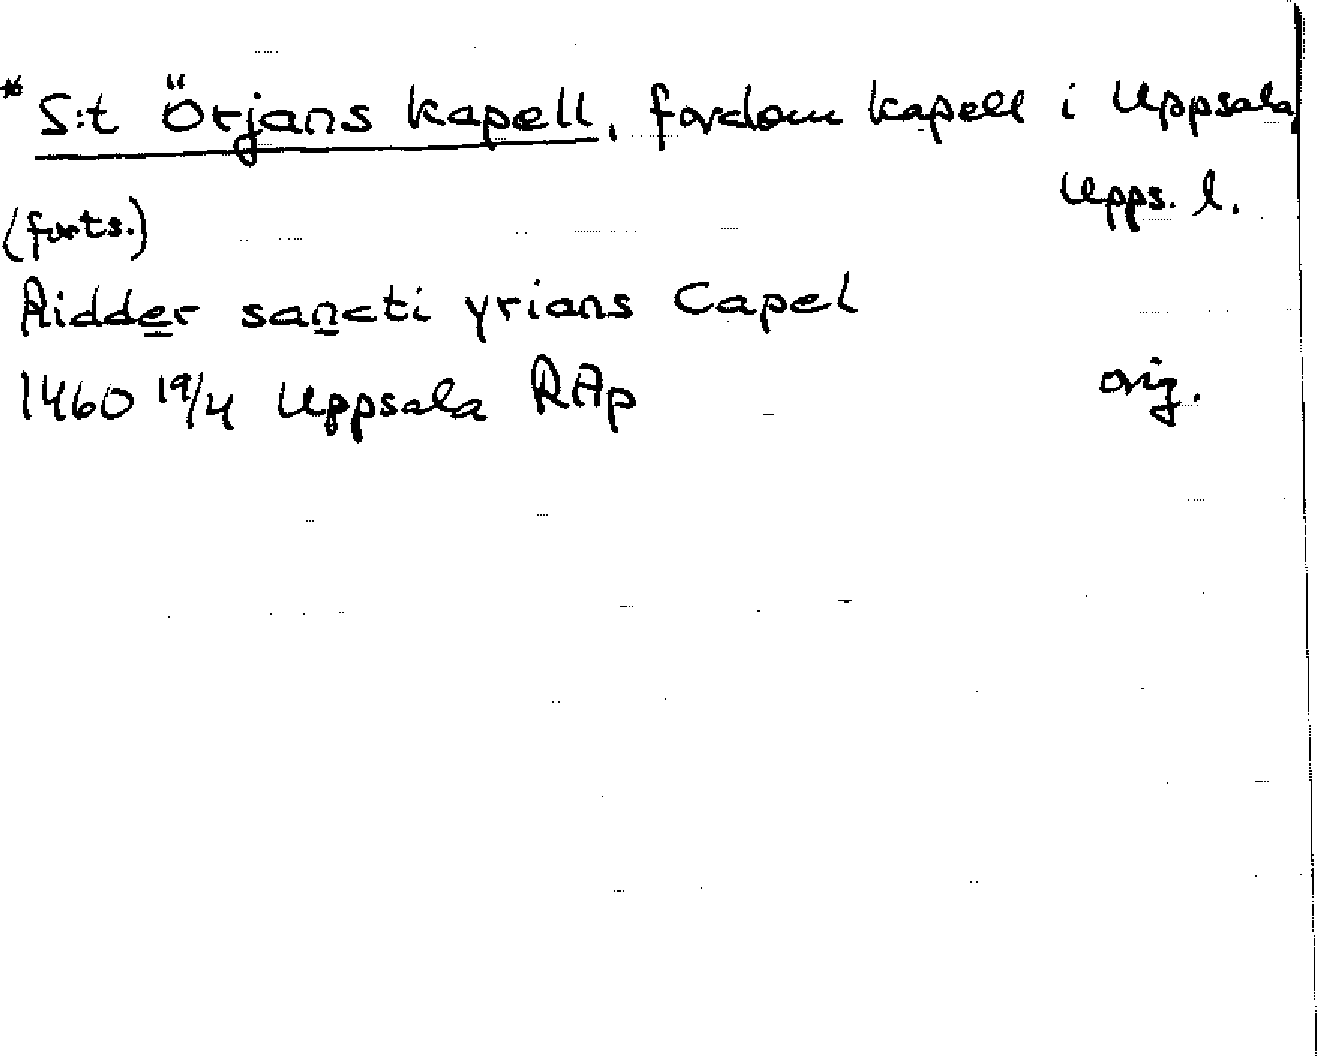 * S:t Örjans kapell, fordom kapell i Uppsala
Upps. l.
(forts.)
Ridder sancti yrians Capel
1460 19/4 Uppsala RAp orig.